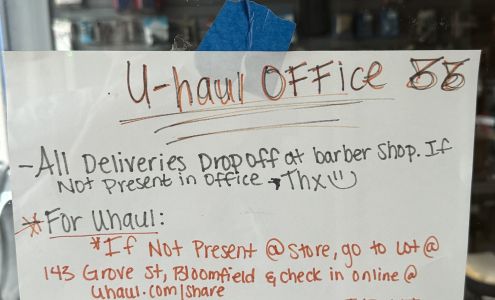 U-haul OFFice
-All Deliveries Drop off at barber shop. If
Not Present in office → Thx
* For Uhaul:
*If Not Present @ store, go to Lot @
143 Grove St, Bloomfield & check in online @
Uhaul.com/share